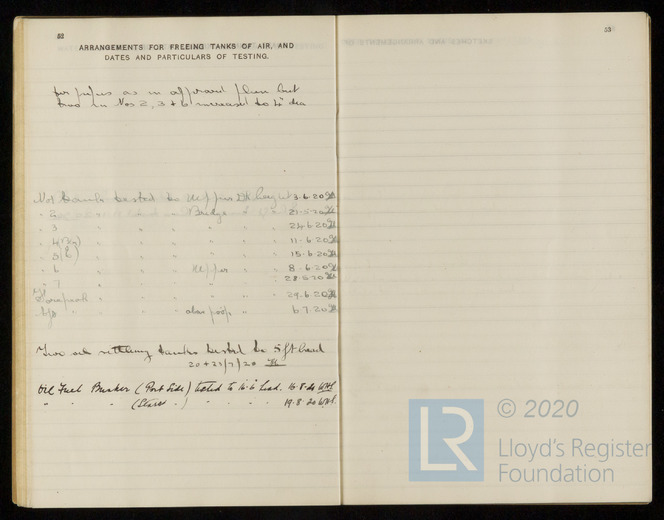 52
ARRANGEMENTS FOR FREEING TANKS OF AIR, AND
DATES AND PARTICULARS OF TESTING.
air pipes as in approved plan but
two in Nos 2, 3 + 6 increased to 4" dia
No 1 tank tested to Upper Dk 3.6.20
" 2 " " " Bridge " 21.5.20
" 3 " " " " " 24.6.20
" 4 " " " " " 11.6.20
" 5 " " " " " 15.6.20
" 6 " " Upper " " 8.6.20
" 7 " " " " " 28.5.20
Forepeak " " " " " 29.6.20
aft " " " poop " 6.7.20
Two oil settling tanks tested to 5 ft head
20 + 23/7/20
Oil Fuel Bunker (Port Side) tested to head. 16.8.20
" " " (Starbd " ) " " " " 19.8.20
53
© 2020
LR
Lloyd's Register
Foundation